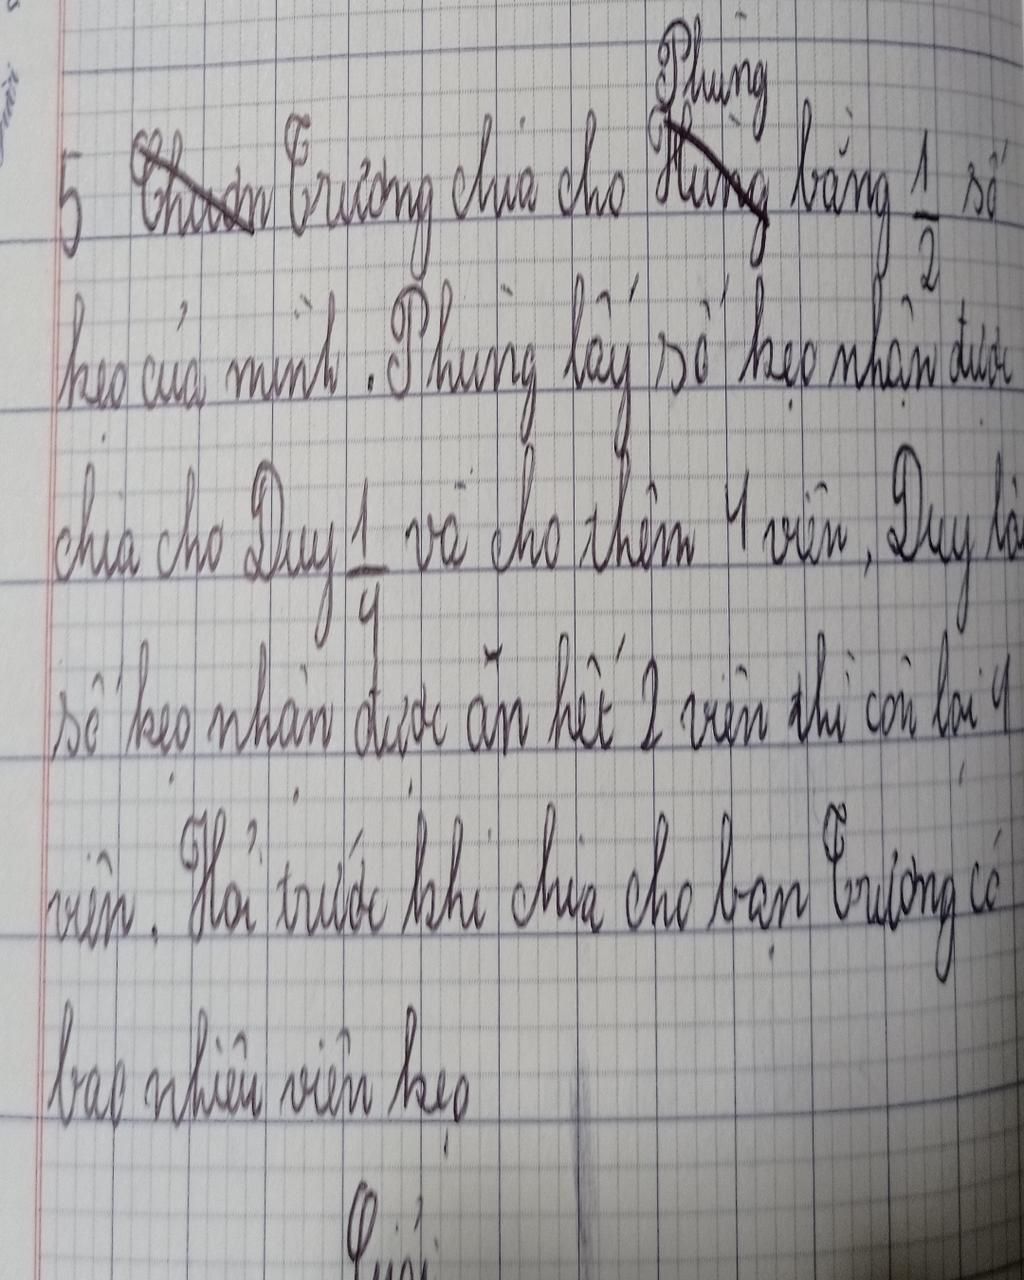 Phùng
5 Trường chia cho bằng 1/2 số
kẹo của mình. Phùng lấy số kẹo nhận được
chia cho Duy 1/4 và cho thêm 4 viên, Duy lấy
số kẹo nhận được ăn hết 2 viên thì còn lại 4
viên. Hỏi trước khi chia cho bạn Trường có
bao nhiêu viên kẹo
Giải